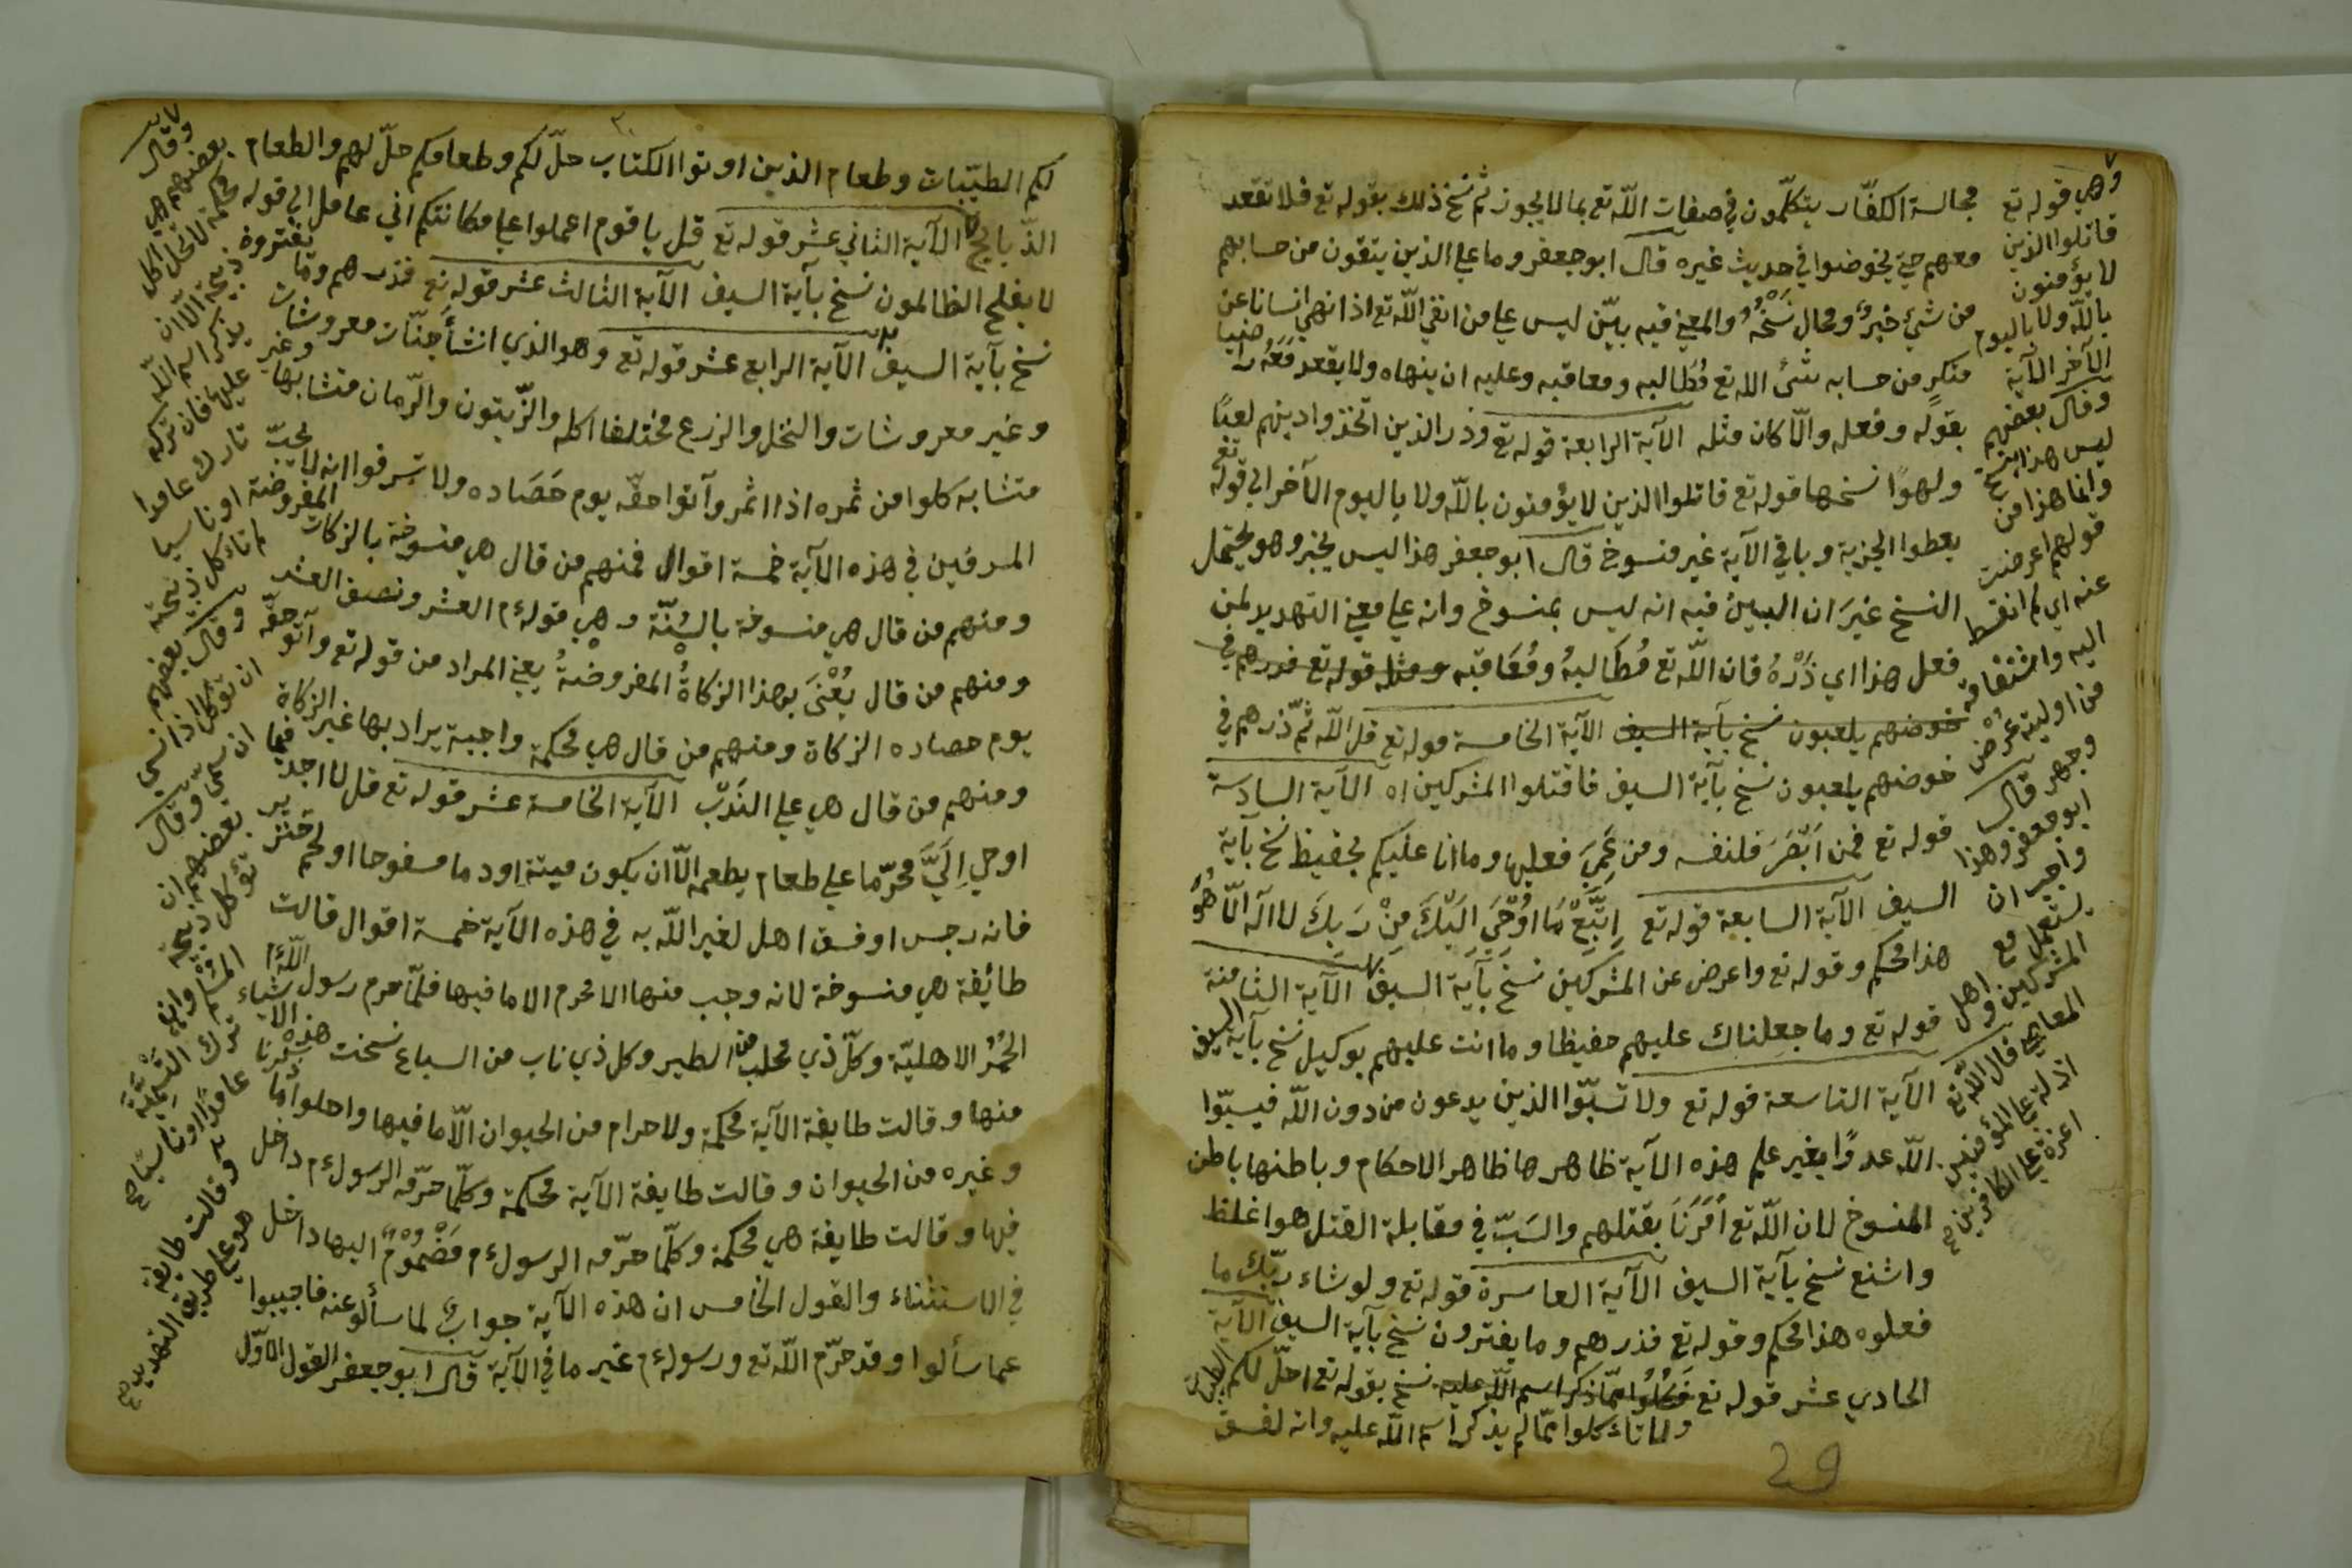 مجالسة الكفّار يتكلّمون في صفات الله تع بما لا يجوز ثم نسخ ذلك بقوله تع فلا تقعد
معهم حتى يخوضوا في حديث غيره قال ابو جعفر وما على الذين يتقون من حسابهم
من شيء خبرٌ ومحال نَسْخُهُ والمعنى فيه بيّن ليس على من اتقى الله تع اذا نهى انسانا عن
منكرٍ من حسابه شئ الله تع مُطَالبه ومعاقبه وعليه ان ينهاه ولا يقعد مَعَهُ راضيا
بقوله وفعله والّا كان مثله الآية الرابعة قوله تع وذر الذين اتخذوا دينهم لعبًا
ولهوًا نسخها قوله تع قاتلوا الذين لا يؤمنون بالله ولا باليوم الآخر الى قوله تع
يعطوا الجزية وباقي الآية غير منسوخ قال ابو جعفر هذا ليس بخبر وهو يحتمل
النسخ غيرَ ان البين فيه انه ليس بمنسوخ وانه على معنى التهديد لمن
فعل هذا اي ذَرْهُ فان الله تع مُطَالبهُ ومُعَاقبه ومثله قوله تع فذرهم في
خوضهم يلعبون نسخ بآية السيف الآية الخامسة قوله تع قل الله ثمّ ذرهم في
خوضهم يلعبون نسخ بآية السيف فاقتلوا المشركين اه الآية السادسة
قوله تع فمن اَبْصَرَ فلنفسه ومن عَمِيَ فعليها وما انا عليكم بحفيظ نسخ بآية
السيف الآية السابعة قوله تع اِتَّبِعْ مَا اُوْحِيَ اِلَيْكَ مِنْ رَبِكَ لا اله الّا هُوَ
هذا محكم وقوله تع واعرض عن المشركين نسخ بآية السيف الآية الثامنة
قوله تع وما جعلناك عليهم حفيظا وما انت عليهم بوكيل نسخ بآية السيف
الآية التاسعة قوله تع ولا تسبّوا الذين يدعون من دون الله فيسبّوا
الله عدوًا بغير علم هذه الآية ظاهرها ظاهر الاحكام وباطنها باطن
المنسوخ لان الله تع اَمَرَنَا بقتلهم والسَبّ في مقابلة القتل هو اغلظ
واشنع نسخ بآية السيف الآية العاسرة قوله تع ولو شاء ربّك ما
فعلوه هذا محكم وقوله تع فذرهم وما يفترون نسخ بآية السيف الآية
الحادي عشر قوله تع فكُلُوا ممّا ذكر اسم الله عليه نسخ بقوله تع احلّ لكم الطيبات
ولا تاءكلوا ممّا لم يذكر اسم الله عليه وانه لفسق
29
وهي قوله تع
قاتلوا الذين
لا يؤمنون
بالله ولا باليوم
الآخر الآية
وقال بعضهم
ليس هذا بنسخ
وانما هذا من
قولهم اعرضت
عنه اي لم انبسط
اليه واشتقاقه
من اوليته عُرْض
وجهي قال
ابو جعفر وهذا
واجب ان
يستعمل مع
المشركين واهل
المعاصي قال الله تع
اذلة على المؤمنين
اعزة على الكافرين صح
لكم الطيّبات وطعام الذين اوتوا الكتاب حلّ لكم وطعامكم حلّ لهم والطعام
الذّبائح الآية الثاني عشر قوله تع قل يا قوم اعملوا على مكانتكم اني عامل الى قوله
لا يفلح الظالمون نسخ بآية السيف الآية الثالث عشر قوله تع فذرهم وما يفترون
نسخ بآية السيف الآية الرابع عشر قوله تع وهو الذي انشأ جنّات معروشات
وغير معروشات والنخل والزرع مختلفا اكله والزّيتون والرّمان متشابها وغير
متشابه كلوا من ثمره اذا اثمر وآتوا حقّه يوم حَصَاده ولا تسرفوا انه لا يحبّ
المسرفين في هذه الآية خمسة اقوال فمنهم من قال هي منسوخة بالزكاة المفروضة
ومنهم من قال هي منسوخة بالسُنّة وهي قوله ءم العشر ونصف العشر
ومنهم من قال يُعْنَى بهذا الزكاةُ المفروضةُ يعني المراد من قوله تع وآتو حقّه
يوم حصاده الزكاة ومنهم من قال هي محكمة واجبة يراد بها غير الزكاة
ومنهم من قال هي على النَدْبِ الآية الخامسة عشر قوله تع قل لا اجد فيما
اوحي اِلَيَّ محرّما على طعام يطعمه الّا ان يكون ميتة او دما مسفوحا او لحم خنزير
فانه رجس او فسق اهل لغير الله به في هذه الآية خمسة اقوال قالت
طائفة هي منسوخة لانه وجب منها الا محرم الا ما فيها فلمّا حرم رسول الله ءم
الحُمُر الاهليّة وكلّ ذي مخلب من الطير وكل ذي ناب من السباع نسخت هذه الاشياء
منها وقالت طايفة الآية محكمة ولا حرام من الحيوان الّا ما فيها واحلوا ما ذكرنا
وغيره من الحيوان وقالت طايفة الآية محكمة وكلّما حرّمه الرسول ءم داخل
فيها وقالت طايفة هي محكمة وكلّما حرّمه الرسول ءم مَضْمُومٌ اليها داخل
في الاستثناء والقول الخامس ان هذه الآية جوابٌ لما سألو عنه فاجيبوا
عما سألوا وقد حرّم الله تع ورسوله ءم غير ما في الآية قال ابو جعفر القول الاوّل
وقال
بعضهم هي
محكمة لا يحل اكل
ذبيحة الّا ان
يذكر اسم الله
عليها فان تركه
تارك عامدا
او ناسيا
لم تاءكل ذبيحته
وقال بعضهم
ان توءكل اذا نسي
ان سمى وقال
بعضهم ان
توءكل ذبيحة
المسلم وان
ترك التسمية
عامدًا او ناسيًا صح
وقالت طايفة
هو على طريق التهديد صح